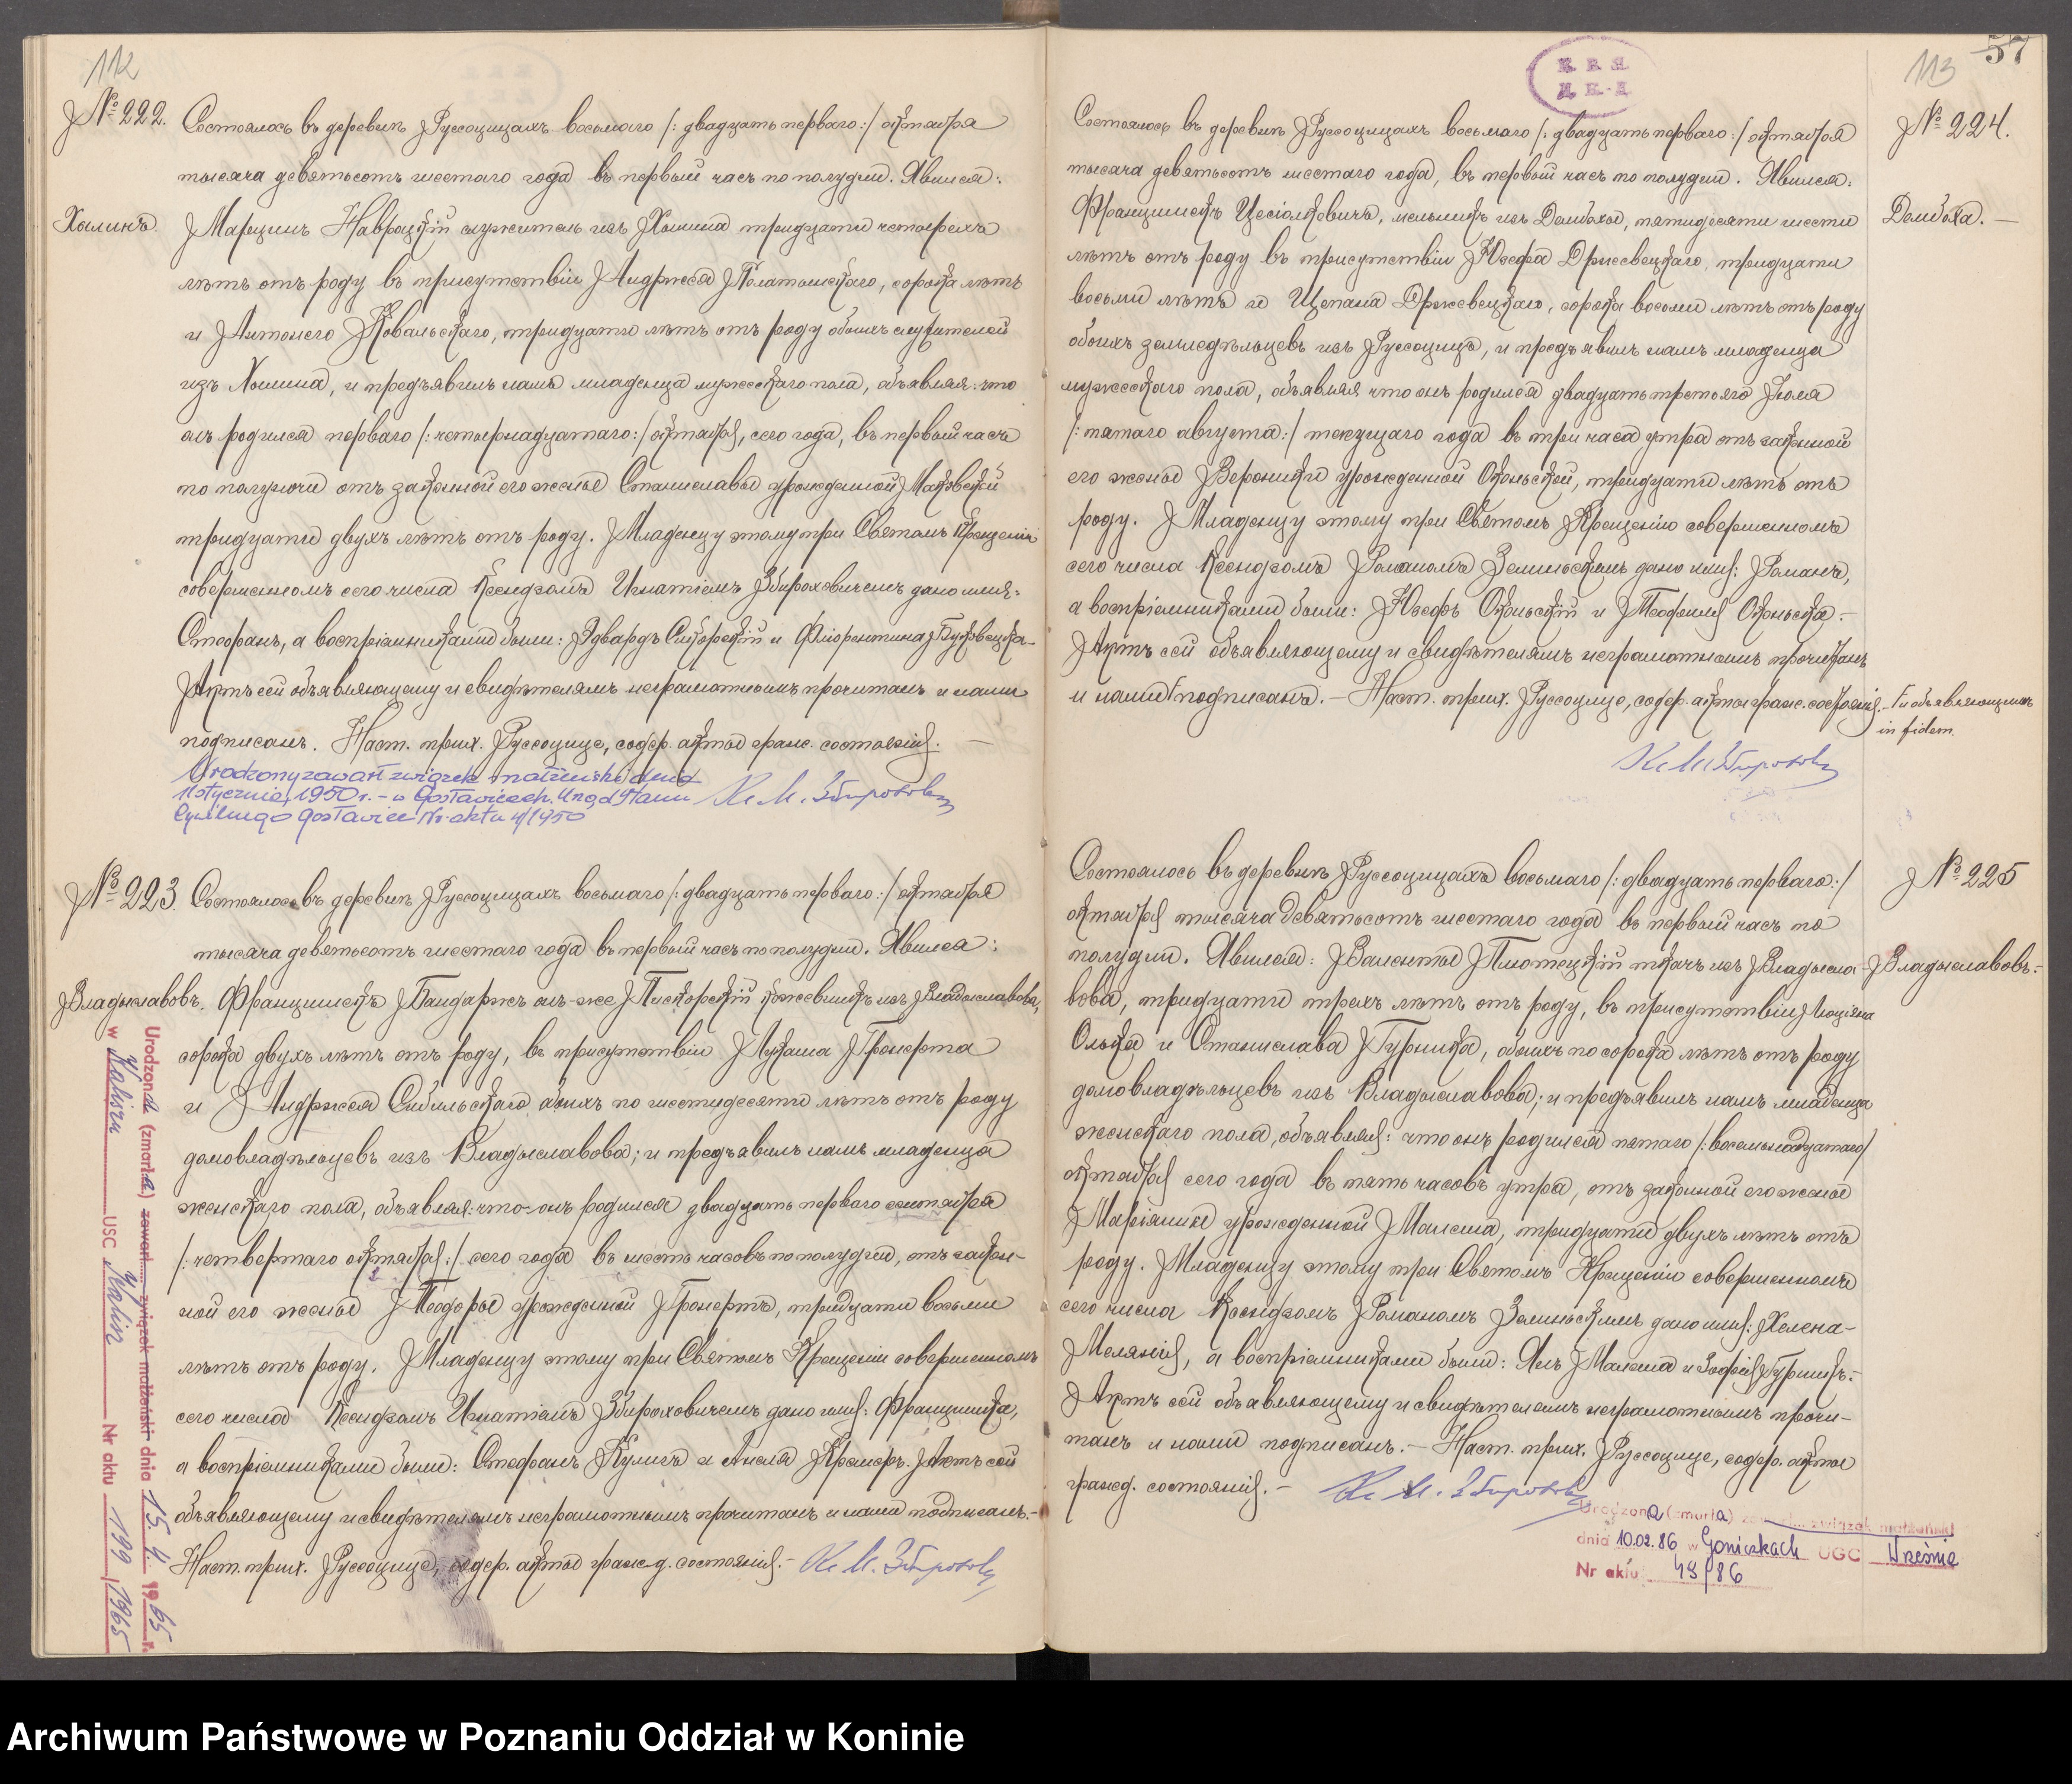 112
№ 222.
Состоялось въ деревнѣ Руссоцицахъ восьмаго /: двадцать перваго :/ октября
тысяча девятьсотъ шестаго года въ первый часъ по полудни. Явился:
Хылинъ.
Марцинъ Навроцкій служитель изъ Хылина тридцати четырехъ
лѣтъ отъ роду въ присутствіи Андржея Платошскаго, сорока лѣтъ
и Антонего Ковальскаго, тридцати лѣтъ отъ роду обоихъ служителей
изъ Хылина, и предъявилъ намъ младенца мужескаго пола, объявляя: что
онъ родился перваго /: четырнадцатаго :/ октября, сего года, въ первый часъ
по полуночи отъ законной его жены Станиславы урожденной Маковской
тридцати двухъ лѣтъ отъ роду. Младенцу этому при Святомъ Крещеніи
совершенномъ сего числа Ксендзомъ Игнатіемъ Збироховичемъ дано имя:
Стефанъ, а воспріемниками были: Эдвардъ Сикорскій и Флорентина Буковецка.-
Актъ сей объявляющему и свидѣтелямъ неграмотнымъ прочитанъ и нами
подписанъ. Наст. прих. Руссоцице, содер. акты граж. состоянія. —
Urodzony zawarł związek małżeński dnia
stycznia 1950 r. - w Gosławicach. Urząd Stanu
Cywilnego Gosławice Nr. aktu 4/1950
№ 223.
Состоялось въ деревнѣ Руссоцицахъ восьмаго /: двадцать перваго :/ октября
тысяча девятьсотъ шестаго года въ первый часъ по полудни. Явился:
Владыславовъ.
Францишекъ Пандаржъ онъ-же Пискорскій кожевникъ изъ Владыславова,
сорока двухъ лѣтъ отъ роду, въ присутствіи Лукаша Гронерта
и Андржея Сибильскаго обоихъ по шестидесяти лѣтъ отъ роду
домовладѣльцевъ изъ Владыславова; и предъявилъ намъ младенца
женскаго пола, объявляя: что-онъ родился двадцать перваго сентября
/: четвертаго октября :/ сего года въ шесть часовъ по полудни, отъ закон-
ной его жены Теодоры урожденной Гронертъ, тридцати восьми
лѣтъ отъ роду. Младенцу этому при Святомъ Крещеніи совершенномъ
сего числа Ксендзомъ Игнатіемъ Збироховичемъ дано имя: Францишка,
а воспріемниками были: Стефанъ Кулигъ и Анеля Кремеръ. Актъ сей
объявляющему и свидѣтелямъ неграмотнымъ прочитанъ и нами подписанъ.-
Наст. прих. Руссоцице, содер. акты гражд. состоянія.-
Urodzona (zmarła) zawarł związek małżeński dnia 15.4. 1965 r.
w Kaliszu USC Kalisz Nr aktu 199/1965
57
113
№ 224.
Состоялось въ деревнѣ Руссоцицахъ восьмаго /: двадцать перваго :/ октября
тысяча девятьсотъ шестаго года, въ первый часъ по полудни. Явился:
Домбоха. —
Францишекъ Цесіолковичъ, мельникъ изъ Домбохы, пятидесяти шести
лѣтъ отъ роду въ присутствіи Юзефа Држевецкаго, тридцати
восьми лѣтъ и Щепана Држевецкаго, сорока восьми лѣтъ отъ роду
обоихъ земледѣльцевъ изъ Руссоцицъ, и предъявилъ намъ младенца
мужескаго пола, объявляя что онъ родился двадцать третьяго Іюля
/: пятаго августа :/ текущаго года въ три часа утра отъ законной
его жены Вероники урожденной Оконьской, тридцати лѣтъ отъ
роду. Младенцу этому при Святомъ Крещеніи совершенномъ
сего числа Ксендзомъ Романомъ Зелиньскимъ дано имя: Романъ,
а воспріемниками были: Юзефъ Оконьскій и Теофиля Оконьска.-
Актъ сей объявляющему и свидѣтелямъ неграмотнымъ прочитанъ
и нами подписанъ. — Наст. прих. Руссоцице, содер. акты граж. состоянія. -
и объявляющимъ
in fidem.
№ 225
Состоялось въ деревнѣ Руссоцицахъ восьмаго /: двадцать перваго :/
октября тысяча девятьсотъ шестаго года въ первый часъ по
Владыславовъ.-
полудни. Явился: Валенты Плотецкій ткачъ изъ Владысла-
вова, тридцати трехъ лѣтъ отъ роду, въ присутствіи Люціяна
Олька и Станислава Гурника, обоихъ по сорока лѣтъ отъ роду
домовладѣльцевъ изъ Владыславова; и предъявилъ намъ младенца
женскаго пола, объявляя: что онъ родился пятаго /: восемнадцатаго/
октября сего года въ пять часовъ утра, отъ законной его жены
Маріянны урожденной Малеша, тридцати двухъ лѣтъ отъ
роду. Младенцу этому при Святомъ Крещеніи совершенномъ
сего числа Ксендзомъ Романомъ Зелиньскимъ дано имя: Хелена-
Меланія, а воспріемниками были: Янъ Малеша и Зофія Гурникъ.-
Актъ сей объявляющему и свидѣтелямъ неграмотнымъ прочи-
танъ и нами подписанъ. — Наст. прих. Руссоцице, содер. акты
гражд. состоянія. -
Urodzona (zmarła) zawarł związek małżeński
dnia 10.02.86 w Goniczkach UGC Września
Nr aktu 49/86
Archiwum Państwowe w Poznaniu Oddział w Koninie